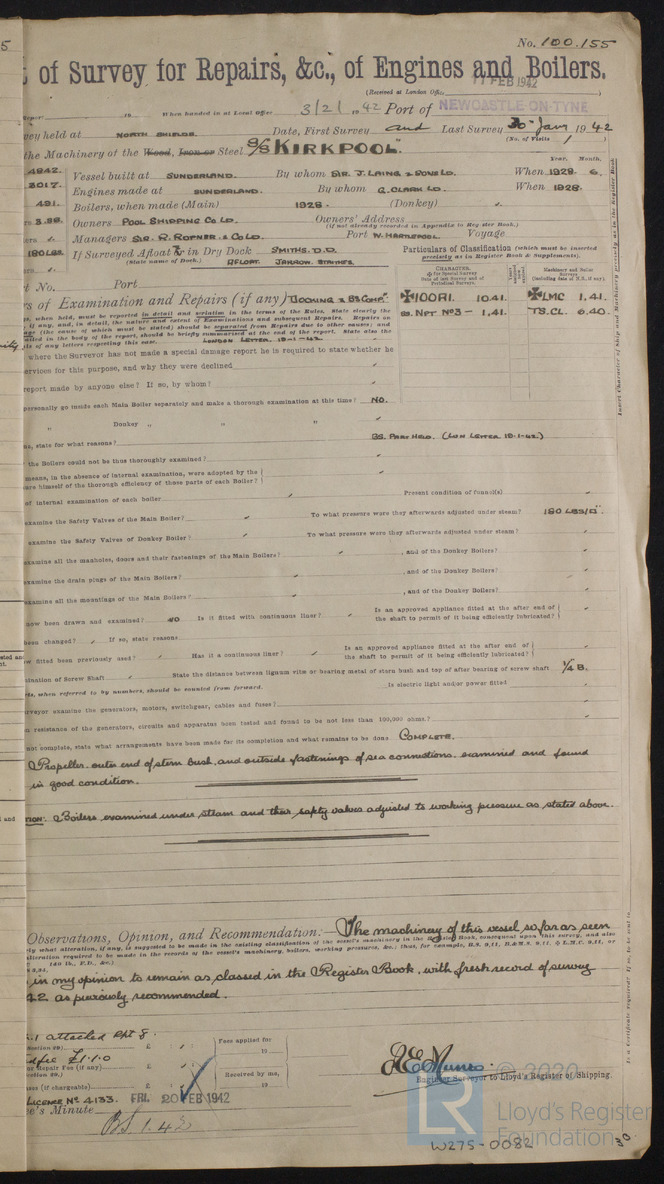 5
No. 100.155
t of Survey for Repairs, &c., of Engines and Boilers.
(Received at London Office 17 FEB 1942 )
Report 19 When handed in at Local Office 3/2/ 19 42 Port of NEWCASTLE-ON-TYNE
vey held at NORTH SHIELDS. Date, First Survey and Last Survey 30th Jan 1942
(No. of Visits 1 )
the Machinery of the Wood, Iron or Steel S/S "KIRKPOOL"
Year. Month.
4842. Vessel built at SUNDERLAND. By whom SIR. J. LAING & SONS LD. When 1928. 6.
3017. Engines made at SUNDERLAND. By whom G. CLARK LD. When 1928.
491. Boilers, when made (Main) 1928. (Donkey)
3.88. Owners POOL SHIPPING CO LD. Owners' Address
(if not already recorded in Appendix to Register Book.)
Managers SIR. R. ROPNER & CO LD. Port W. HARTLEPOOL. Voyage
180 LBS. If Surveyed Afloat & in Dry Dock SMITHS. D.D.
(State name of Dock.) AFLOAT. JARROW. STAITHES
Particulars of Classification (which must be inserted
precisely as in Register Book & Supplements).
CHARACTER.
✠ for Special Survey
Date of last Survey and of
Periodical Surveys.
Machinery and Boiler
Surveys
(including date of N.B., if any).
✠100A1. 10.41. ✠LMC 1.41.
SS. NPT No3 - 1.41. TS.CL 6.40.
t No. Port
rs of Examination and Repairs (if any) DOCKING & BS COMP.
gs, when held, must be reported in detail and seriatim in the terms of the Rules. State clearly the
if any, and, in detail, the nature and extent of Examinations and subsequent Repairs. Repairs on
age (the cause of which must be stated) should be separated from Repairs due to other causes; and
tailed in the body of the report, should be briefly summarised at the end of the report. State also the
ls of any letters respecting this case. LONDON LETTER 19-1-42
where the Surveyor has not made a special damage report he is required to state whether he
services for this purpose, and why they were declined
report made by anyone else? If so, by whom?
personally go inside each Main Boiler separately and make a thorough examination at this time? NO.
„ Donkey „ „ „
us, state for what reasons? BS. PART HELD. (LON LETTER 19-1-42)
the Boilers could not be thus thoroughly examined?
means, in the absence of internal examination, were adopted by the
ure himself of the thorough efficiency of those parts of each Boiler?
of internal examination of each boiler Present condition of funnel(s)
examine the Safety Valves of the Main Boiler? To what pressure were they afterwards adjusted under steam? 180 LBS/□".
examine the Safety Valves of Donkey Boiler? To what pressure were they afterwards adjusted under steam?
examine all the manholes, doors and their fastenings of the Main Boilers? , and of the Donkey Boilers?
examine the drain plugs of the Main Boilers? , and of the Donkey Boilers?
examine all the mountings of the Main Boilers? , and of the Donkey Boilers?
now been drawn and examined? NO Is it fitted with continuous liner? Is an approved appliance fitted at the after end of
the shaft to permit of it being efficiently lubricated?
been changed? If so, state reasons
w fitted been previously used? Has it a continuous liner? Is an approved appliance fitted at the after end of
the shaft to permit of it being efficiently lubricated?
ination of Screw Shaft State the distance between lignum vitæ or bearing metal of stern bush and top of after bearing of screw shaft 1/4 B.
rts, when referred to by numbers, should be counted from forward. Is electric light and/or power fitted
rveyor examine the generators, motors, switchgear, cables and fuses?
n resistance of the generators, circuits and apparatus been tested and found to be not less than 100,000 ohms?
not complete, state what arrangements have been made for its completion and what remains to be done COMPLETE.
Propeller, outer end of stern bush, and outside fastenings of sea connections. examined and found
in good condition.
TION:- Boilers examined under steam and their safety valves adjusted to working pressure as stated above.
Observations, Opinion, and Recommendation:— The machinery of this vessel so far as seen
ly what alteration, if any, is suggested to be made in the existing classification of the vessel's machinery in the Register Book, consequent upon this survey, and also
alteration required to be made in the records of the vessel's machinery, boilers, working pressures, &c.; thus, for example, B.S. 9,11, B.&M.S. 9,11, ✠ L.M.C. 9,11, or
140 lb., F.D., &c.)
in my opinion to remain as classed in the Register Book, with fresh record of survey
42 as previously recommended.
attached Rpt 8.
£1.1.0
or Repair Fee (if any)
ses (if chargeable)
Fees applied for
19
Received by me,
19
LICENCE No 4133.
ee's Minute FRI. 20 FEB 1942
BS 1.42
Engineer Surveyor to Lloyd's Register of Shipping.
© 2020
LR
Lloyd's Register
Foundation
W275-0082
Insert Character of Ship and Machinery precisely as in the Register Book